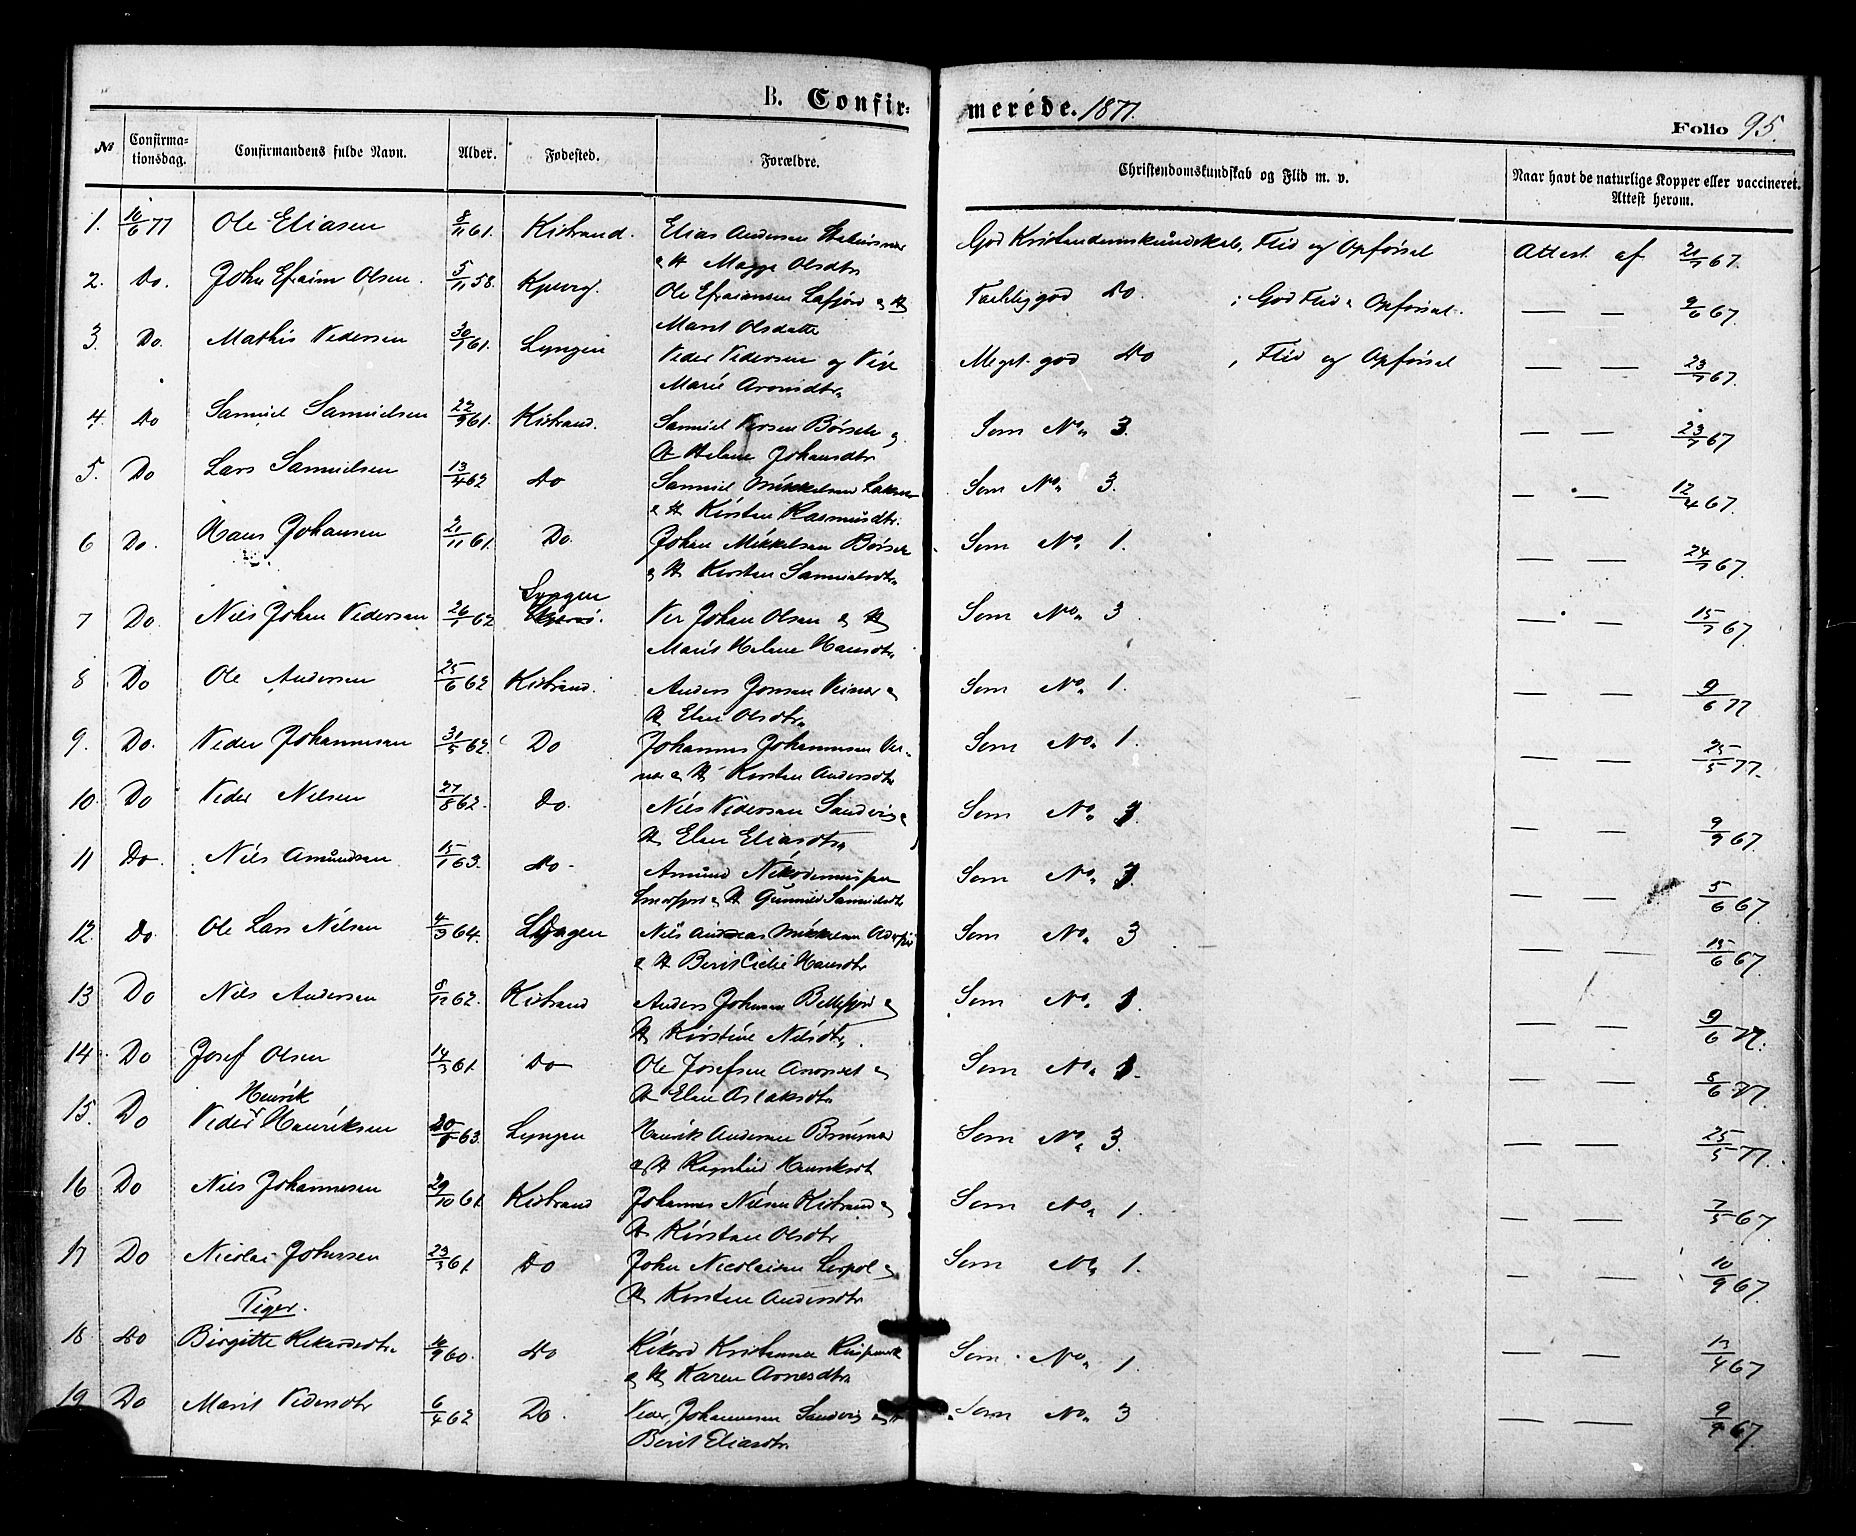 B. Confir-
merede. 1877.
Folio 95.
№ Confirmationsdag. Confirmandens fulde Navn. Alder. Fødested. Forældre. Christendomskundskab og Flid m. v. Naar havt de naturlige Kopper eller vaccineret. Attest herom.
1. 10/6 77 Ole Eliasen 8/11 61. Kistrand. Elias Andersen God Kristendomskundskab, Flid og Opførsel Attest af 21/7 67.
Magga Olsdtr
2. Do. John Efraim Olsen. 5/11 58. Ole Efraimsen Lafjord og Temmelig god Do. ; God Flid & Opførsel. — — 9/6 67.
Marit Olsdatter
3. Do. Mathis Pedersen 30/7 61. Lyngen Peder Pedersen og Meget god Do , Flid og Opførsel — — 23/7 67.
Marie Aronsdtr.
4. Do Samuel Samuelsen 22/9 61. Kistrand. Samuel Persen Børsele og Som No. 3. — — 23/7 67
H Helene Johansdtr
5. Do Lars Samuelsen 13/4 62 Do Samuel Mikkelsen Som No. 3. — — 12/4 67.
& H Kirsten Rasmusdtr.
6 Do. Hans Johansen 21/11 61. Do. Johan Mikkelsen Børsel Som No. 1. — — 24/7 67.
& H Kirsten Samuelsdtr.
Lyngen
7 Do. Nils Johan Pedersen 26/1 62 Per Johan Olsen & H Som No. 3 — — 15/7 67.
Marit Helene Hansdtr
8 Do Ole Andersen 25/6 62 Kistrand. Anders Jonsen & Som No. 1. — — 9/6 77
H Elen Olsdtr.
9. Do. Peder Johannesen 31/5 62. Do Johannes Johannesen Som No. 1. — — 25/5 77.
& H Kirsten Andersdtr
10. Do Peder Nilsen 27/8 62. Do. Nils Pedersen Sandvig & Som No. 3. — — 9/9 67.
H Elen Eliasdtr.
11 Do. Nils Amundsen 15/1 63. Do. Amund Nikodemussen Som No. 3. — — 5/6 67
& H Gunnild Samuelsdtr
12. Do. Ole Lars Nilsen 4/3 64. Lyngen Nils Andreas Mikkelsen Som No. 3 — 15/6 67.
& H Berit Cecilie Hansdtr
13 Do Nils Andersen 8/12 62. Kistrand Anders Johnsen Billefjord & Som No. 1. — — 9/6 77.
H Kirstine Nilsdtr.
14. Do Josef Olsen 14/3 61. Do Ole Josefsen & Som No. 1. — — 8/6 77.
H Elen Aslaksdtr.
Henrik
15. Do Peder Henriksen 20/8 63. Lyngen Henrik Andersen Som No. 3. — — 25/5 77.
& H Ragnhild Henriksdt
16 Do Nils Johannesen 29/10 61. Kistrand Johannes Nilsen Kistrand & Som No. 1. — — 7/5 67.
H Kirsten Olsdtr
17 Do Nicolai Johnsen 23/3 61. Do John Nicolaisen Leirpol & Som No. 1. — — 10/9 67.
H Kirsten Andersdtr
Piger.
18. Do Birgitte Rikardsdtr. 10/9 60. Do Rikard Kristiansen Som No. 1. — — 13/4 67
& H Karen Arnesdtr.
19 Do Marit Pedersdtr 6/4 62 Do. Peder Johannesen Sandvig & H Som No. 3 — — 67.
Berit Eliasdtr